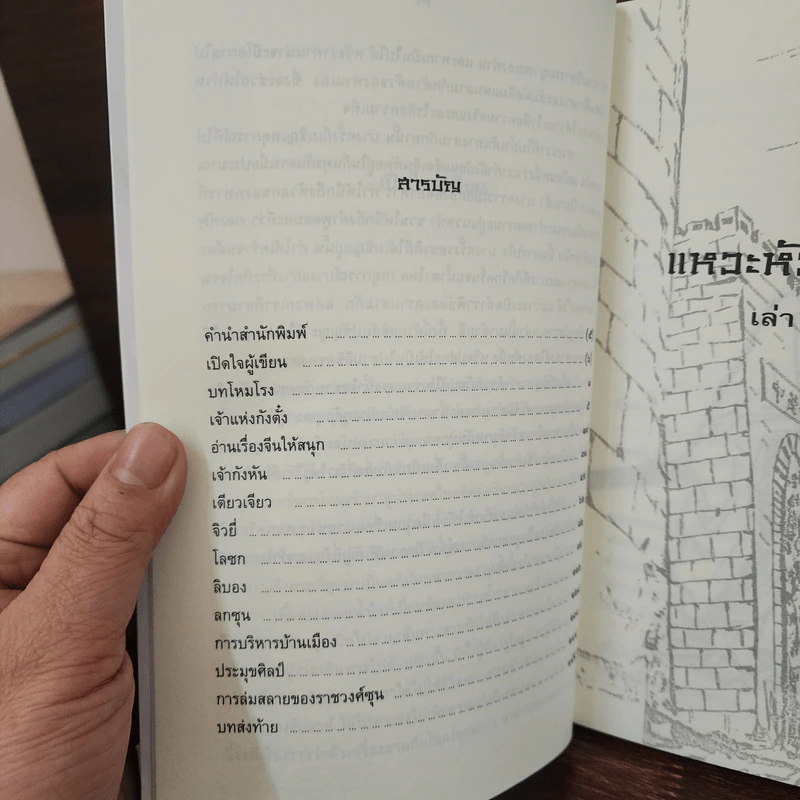 สารบัญ
คำนำสำนักพิมพ์
เปิดใจผู้เขียน
บทโหมโรง
เจ้าแห่งกังตั๋ง
อ่านเรื่องจีนให้สนุก
เจ้ากังหัน
เตียวเจียว
จิวยี่
โลซก
ลิบอง
ลกซุน
การบริหารบ้านเมือง
ประมุขศิลป์
การล่มสลายของราชวงศ์ซุน
บทส่งท้าย
แหวะหั
เล่า